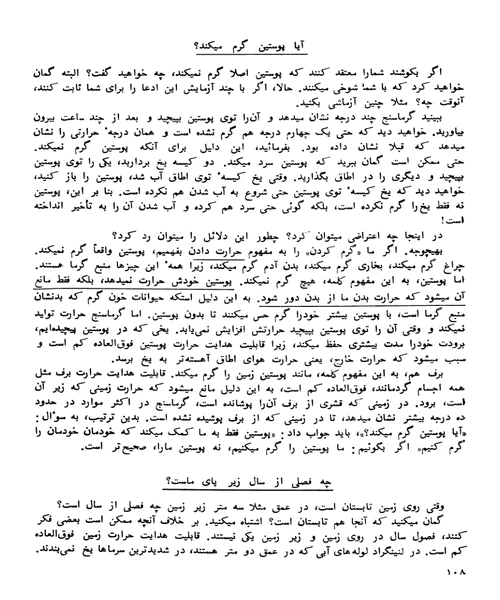 آیا پوستین گرم میکند؟
اگر بکوشند شمارا معتقد کنند که پوستین اصلا گرم نمیکند، چه خواهید گفت؟ البته گمان
خواهید کرد که با شما شوخی میکنند. حالا، اگر با چند آزمایش این ادعا را برای شما ثابت کنند،
آنوقت چه؟ مثلا چنین آزماشی بکنید.
ببینید گرماسنج چند درجه نشان میدهد و آن را توی پوستین بپیچید و بعد از چند ساعت بیرون
بیاورید. خواهید دید که حتی یک چهارم درجه هم گرم نشده است و همان درجهٔ حرارتی را نشان
میدهد که قبلا نشان داده بود. بفرمائید، این دلیل برای آنکه پوستین گرم نمیکند.
حتی ممکن است گمان ببرید که پوستین سرد میکند. دو کیسه یخ بردارید، یکی را توی پوستین
بپیچید و دیگری را در اطاق بگذارید. وقتی یخ کیسهٔ توی اطاق آب شد، پوستین را باز کنید،
خواهید دید که یخ کیسهٔ توی پوستین حتی شروع به آب شدن هم نکرده است. بنا بر این، پوستین
نه فقط یخ را گرم نکرده است، بلکه گوئی حتی سرد هم کرده و آب شدن آن را به تأخیر انداخته
است!
در اینجا چه اعتراضی میتوان کرد؟ چطور این دلائل را میتوان رد کرد؟
بهیچوجه. اگر ما «گرم کردن» را به مفهوم حرارت دادن بفهمیم، پوستین واقعاً گرم نمیکند.
چراغ گرم میکند، بخاری گرم میکند، بدن آدم گرم میکند، زیرا همهٔ این چیزها منبع گرما هستند.
اما پوستین، به این مفهوم کلمه، هیچ گرم نمیکند. پوستین خودش حرارت نمیدهد، بلکه فقط مانع
آن میشود که حرارت بدن ما از بدن دور شود. به این دلیل استکه حیوانات خون گرم که بدنشان
منبع گرما است، با پوستین بیشتر خودرا گرم حس میکنند تا بدون پوستین. اما گرماسنج حرارت تولید
نمیکند و وقتی آن را توی پوستین بپیچید حرارتش افزایش نمی‌یابد. یخی که در پوستین پیچیده‌ایم،
برودت خودرا مدت بیشتری حفظ میکند، زیرا قابلیت هدایت حرارت پوستین فوق‌العاده کم است و
سبب میشود که حرارت خارج، یعنی حرارت هوای اطاق آهسته‌تر به یخ برسد.
برف هم، به این مفهوم کلمه، مانند پوستین زمین را گرم میکند. قابلیت هدایت حرارت برف مثل
همه اجسام گردمانند، فوق‌العاده کم است، به این دلیل مانع میشود که حرارت زمینی که زیر آن
است، برود. در زمینی که قشری از برف آن را پوشانده است، گرماسنج در اکثر موارد در حدود
ده درجه بیشتر نشان میدهد، تا در زمینی که از برف پوشیده نشده است. بدین ترتیب، به سؤال:
«آیا پوستین گرم میکند؟»، باید جواب داد: «پوستین فقط به ما کمک میکند که خودمان خودمان را
گرم کنیم» اگر بگوئیم: ما پوستین را گرم میکنیم، نه پوستین مارا، صحیح‌تر است.
چه فصلی از سال زیر پای ماست؟
وقتی روی زمین تابستان است، در عمق مثلا سه متر زیر زمین چه فصلی از سال است؟
گمان میکنید که آنجا هم تابستان است؟ اشتباه میکنید. بر خلاف آنچه ممکن است بعضی فکر
کنند، فصول سال در روی زمین و زیر زمین یکی نیستند. قابلیت هدایت حرارت زمین فوق‌العاده
کم است. در لنینگراد لوله‌های آبی که در عمق دو متر هستند، در شدیدترین سرماها یخ نمی‌بندند.
۱۰۸